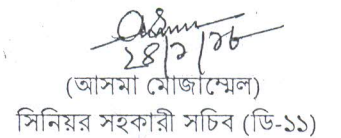 ২৪/১/১৮
(আসমা মোজাম্মেল)
সিনিয়র সহকারী সচিব (ডি-১১)